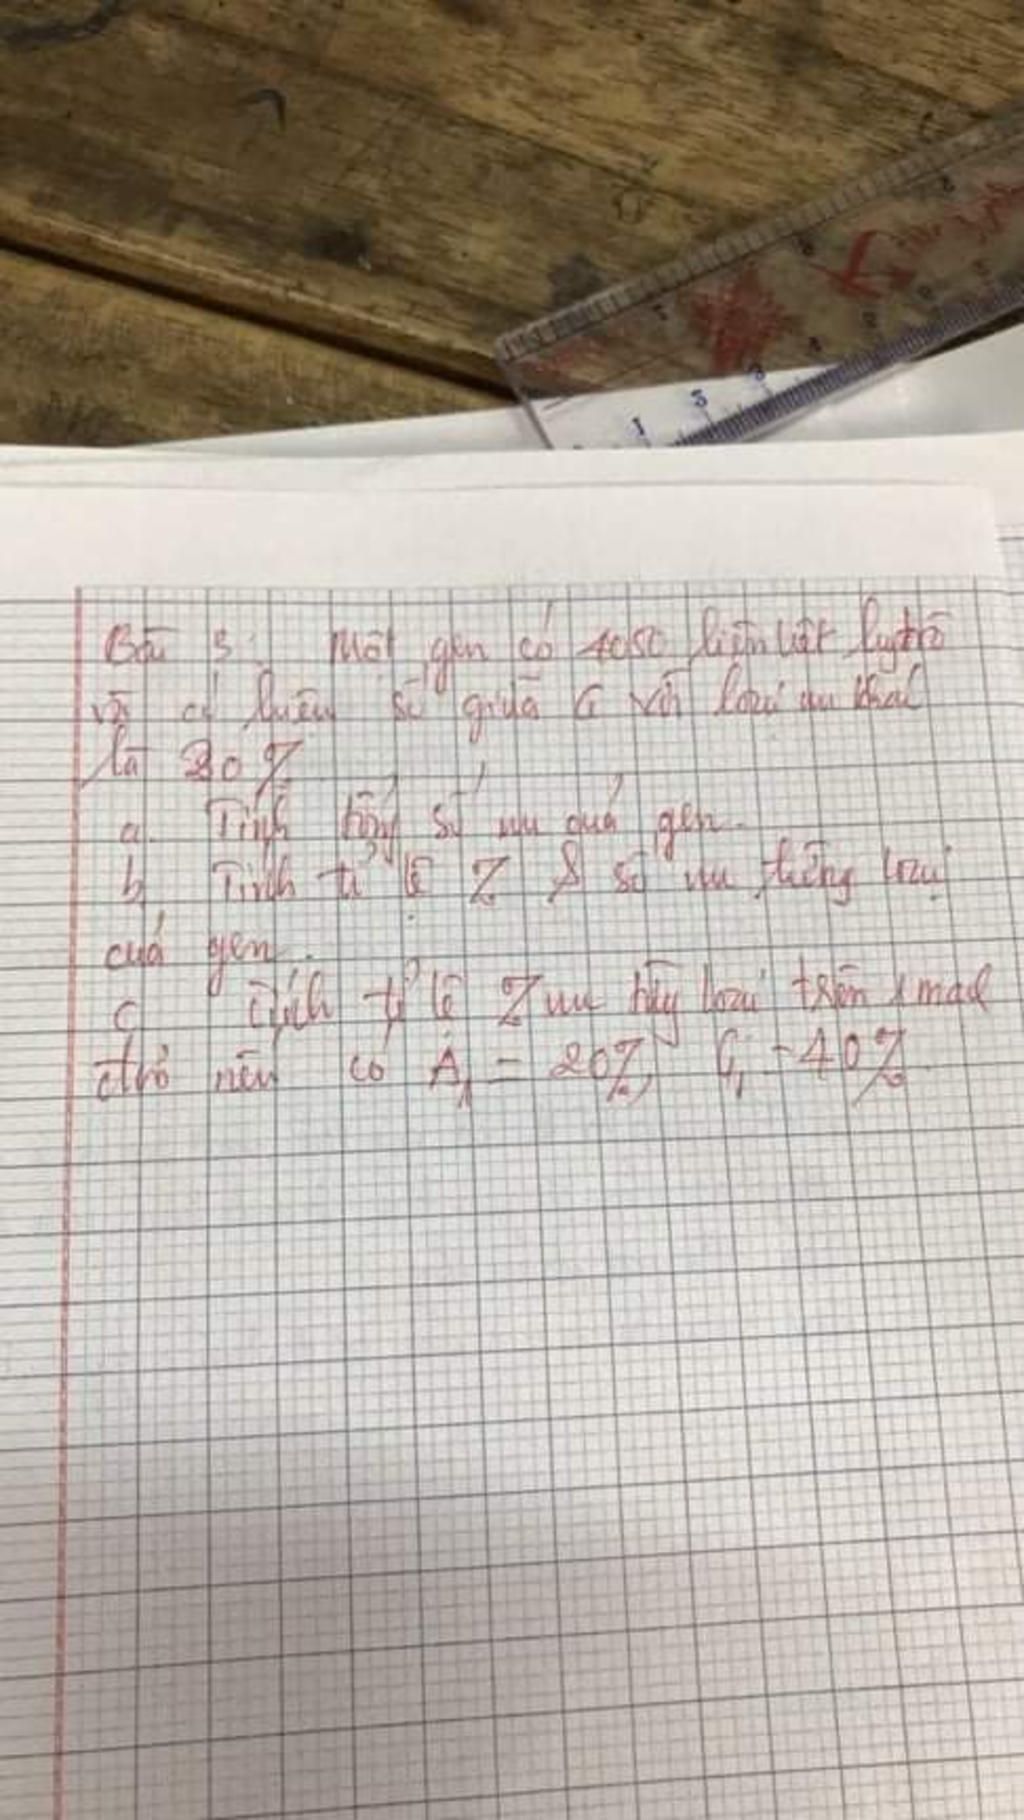 Bài 3: Một gen có 4050 liên kết hydrô
và có hiệu số giữa G với loại nu khác
là 20%
a. Tính tổng số nu của gen.
b, Tính tỉ lệ % & số nu từng loại
của gen.
c, tỉ lệ % nu loại trên 1 mạch
nếu có A₁ = 20%, G₁ = 40%
1 2 3